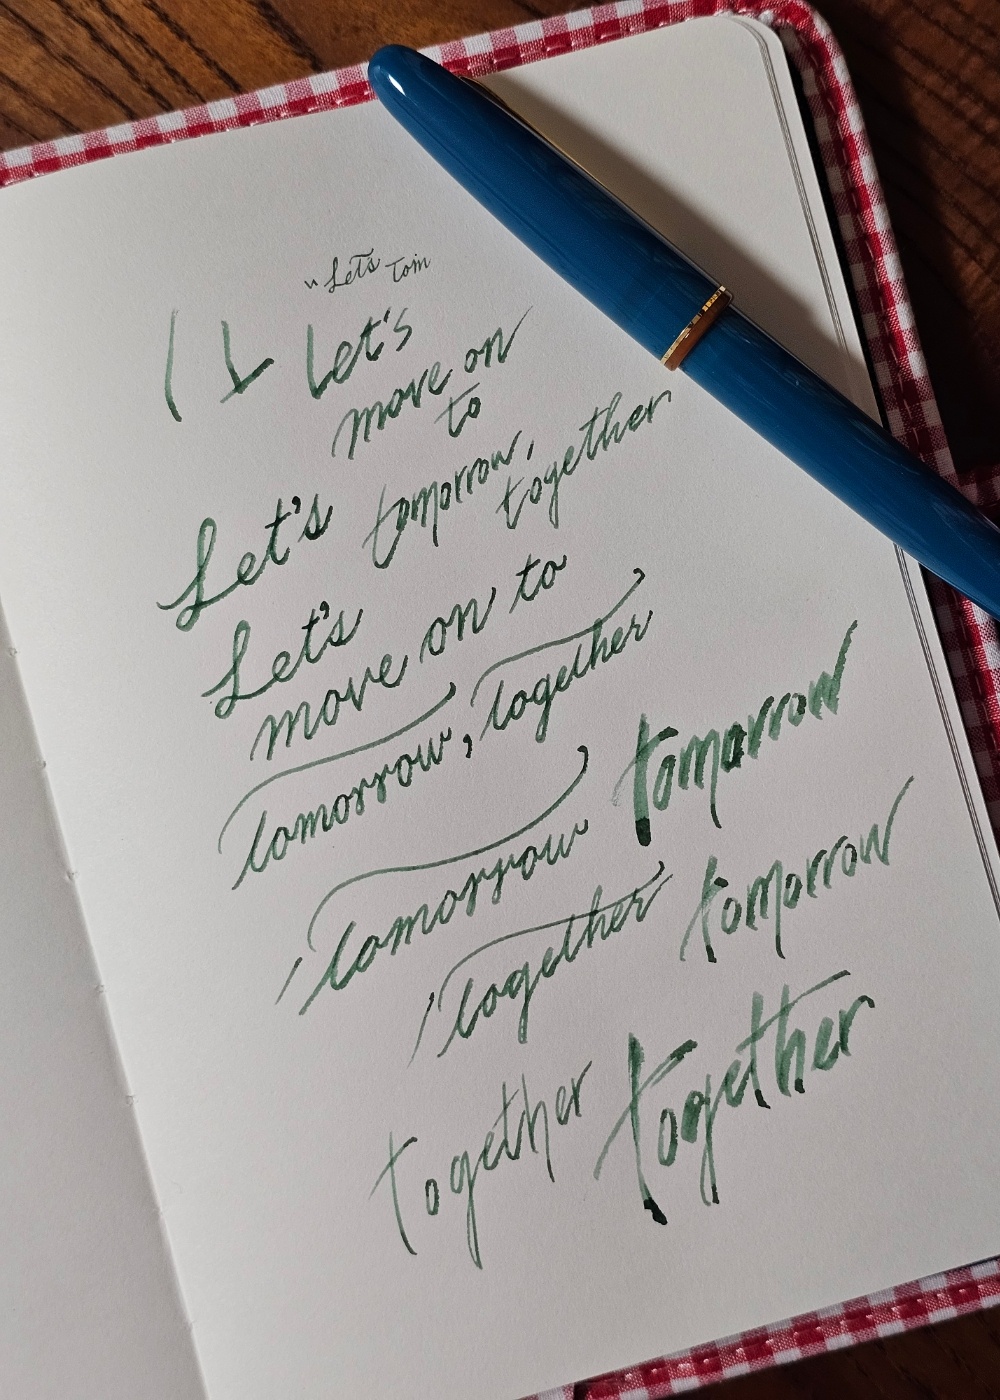 "Let's Tom
L Let's
move on
to
tomorrow,
together
Let's
Let's
move on to
tomorrow, together
tomorrow
tomorrow
together
tomorrow
together
together